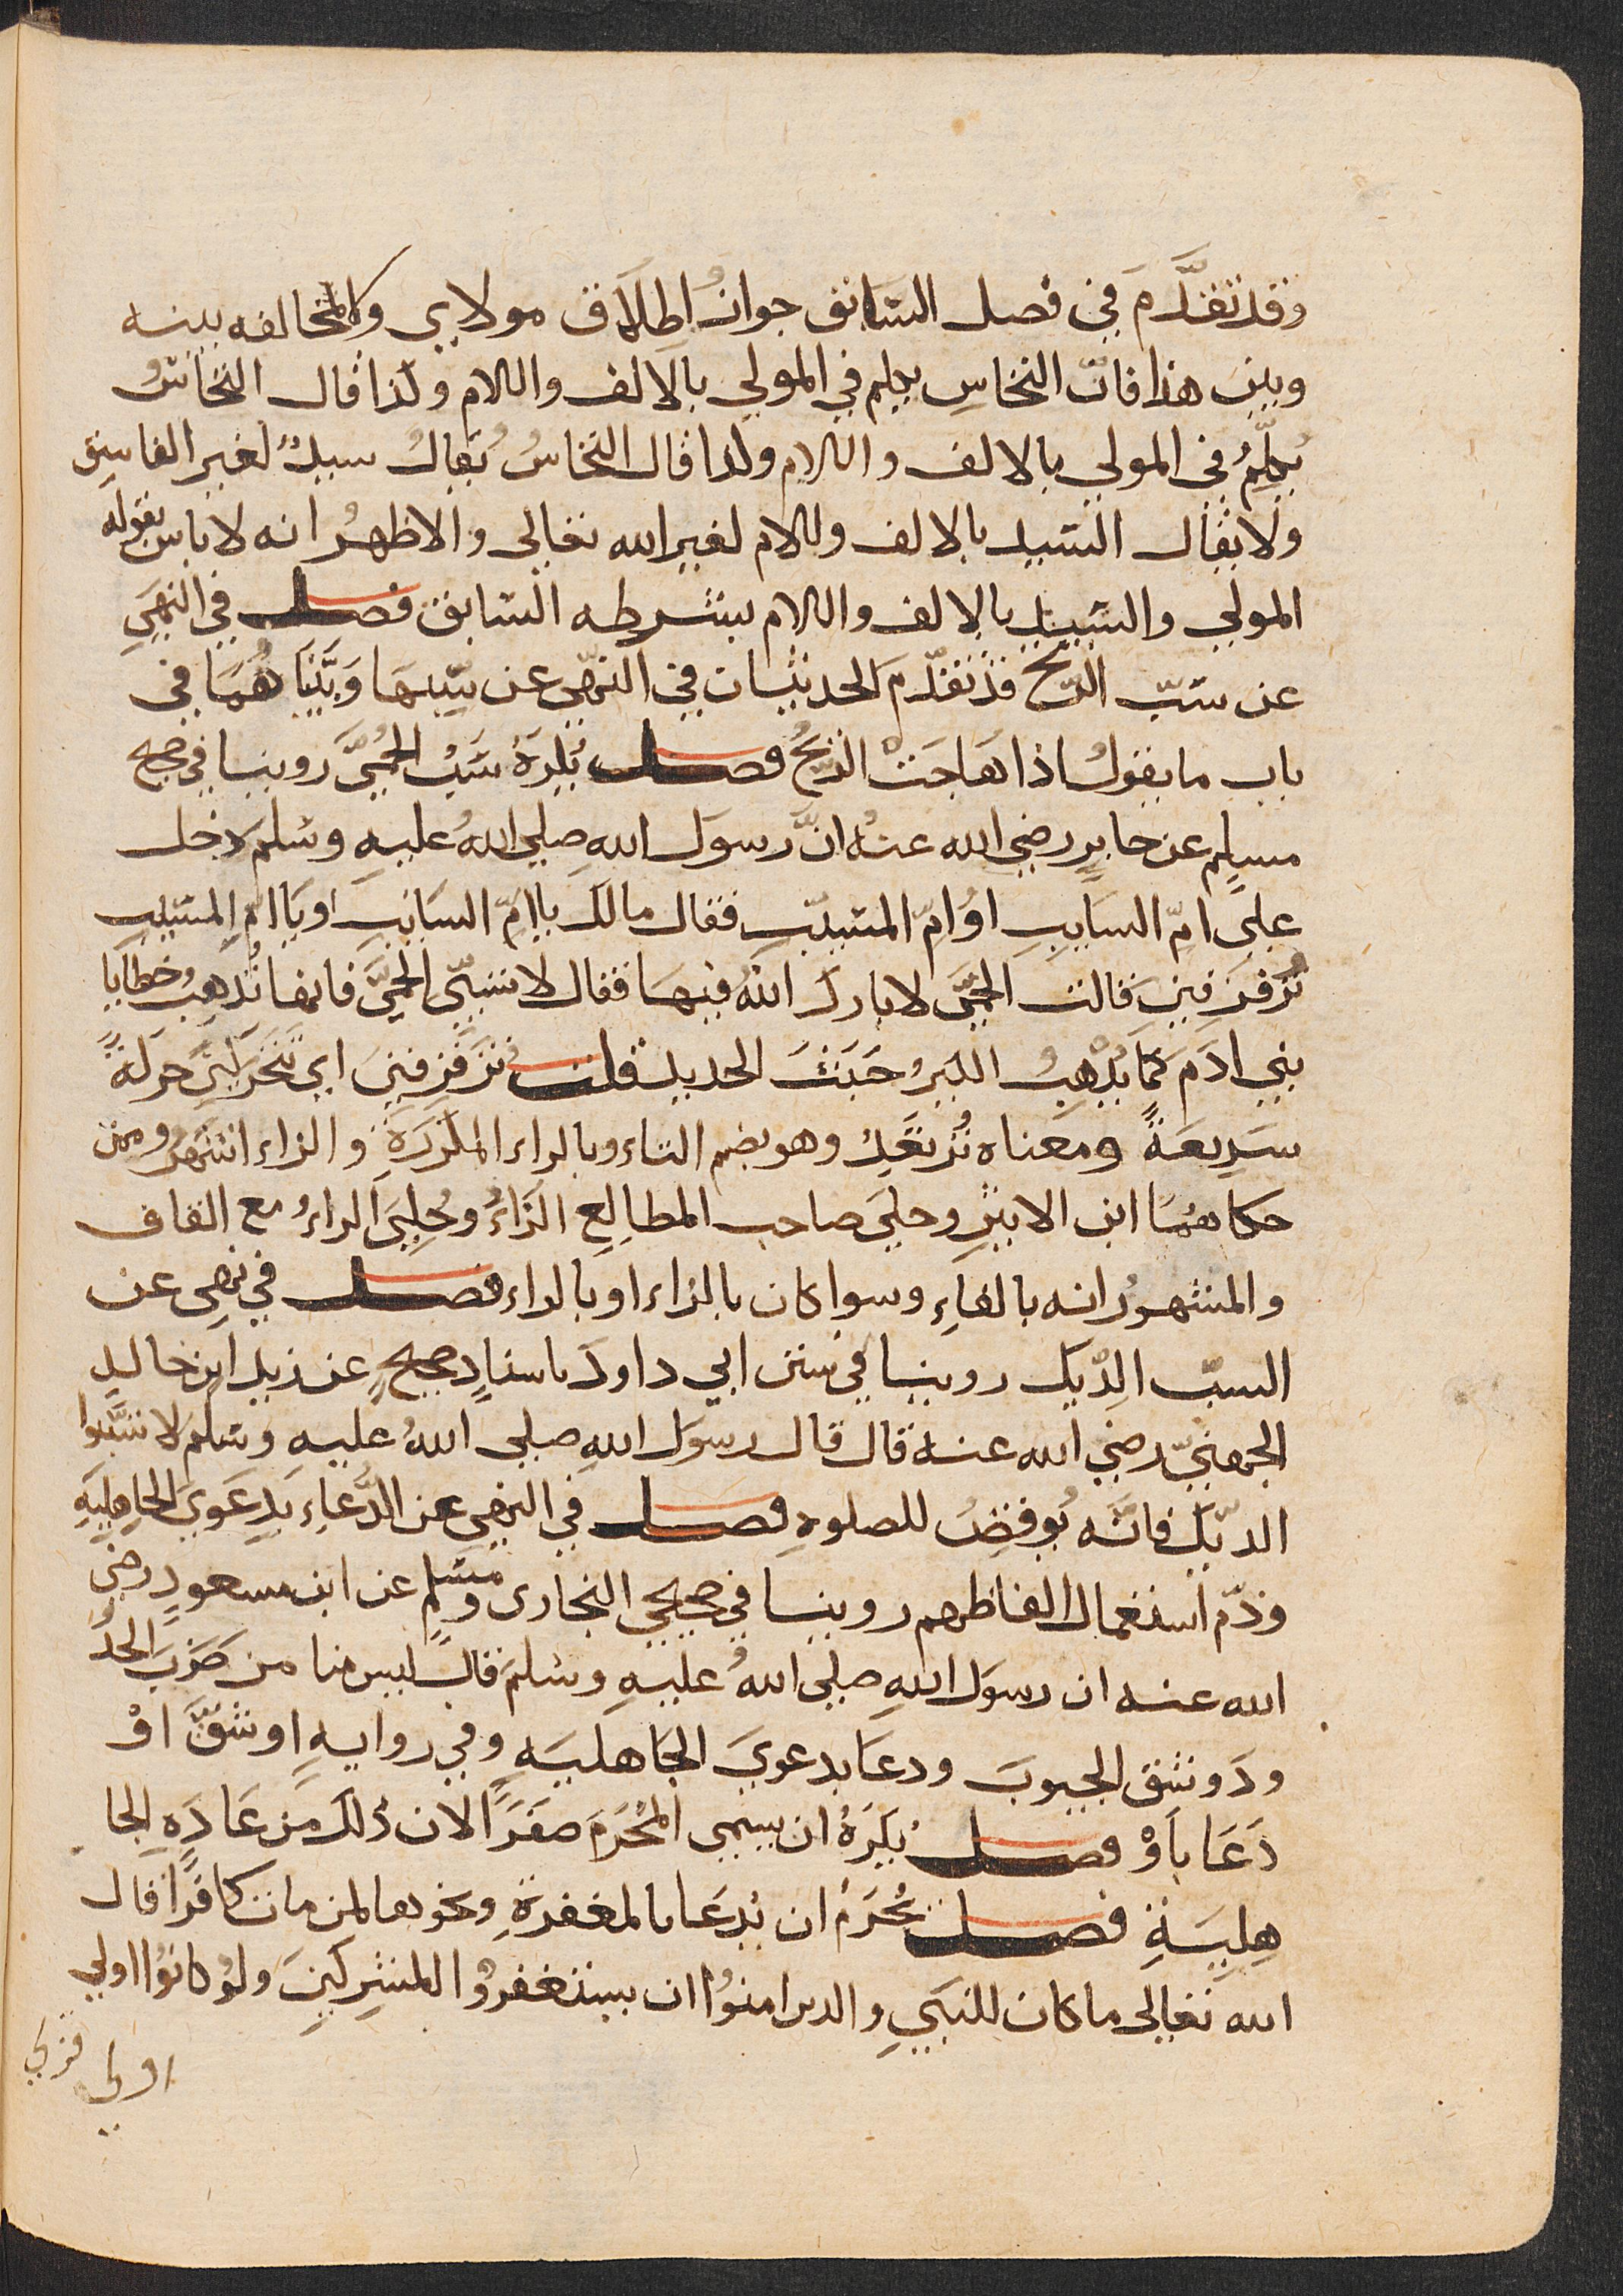 وقد تقدَّمَ في فصل السَّابق جوازُ اِطلَاق مولاي ولا مخالفه بينه
وبين هذا فانّ النحاسِ يكلم في المولي بالالف واللام وكذا قال النحّاسُ
يُكلِّمُ في المولي بالالف واللام وكذا قال النحّاسُ يُقالُ سيدٌ لغير الفاسِق
ولا يقال السّيد بالالف واللام لغير الله تعالى والاظهرُ انه لا باس بقوله
المولي والسّيد بالالف واللام بشرطه السّابق فصل في النهي
عن سَبّ الرّيح قد تقدّمَ الحديثان في النهي عن سَبّها وَبَيَّنَاهُمَا في
باب ما يقولُ اذا هَاجَتْ الرّيحُ فصل يُكرَهُ سَبُّ الحُمَّى روينا في صحيح
مسلِم عن جابرٍ رضي الله عنهُ انَّ رسوَل اللهِ صلي اللهُ عليهِ وسَلمَ دخل
على امّ السَايبِ اوْ امّ المسَيّبِ فقال مالكِ يا امّ السَايبِ او يا امّ المسَيّبِ
تُزفزِفينَ قالت الحُمَّى لا باركَ اللهُ فيهَا فقال لا تسُبّي الحُمَّى فانها تُذهِبُ خطَايا
بني ادَمَ كَمَا يُذْهِبُ الكيرُ خَبَثَ الحديد قلت تزَفزِفينَ اي تتحَرّكينَ حركةً
سَريعَةً ومَعناه تُرتعَد وهو بضم التاء وبالراء المكرّرَةِ والزاء اشهرُ وممن
حكاهُمَا ابن الاثيرِ وحكيَ صاحب المطالِعِ الزّاءُ وحُكِيَ الراءُ مع القاف
والمشهورُ انه بالفاءِ وسوا كان بالزاء او بالراء فصل في نهيِ عن
السبّ الدّيك روينا في سنن ابي داودَ باسنادٍ صحيحٍ عن زيد ابن خالدٍ
الجهنيّ رضي الله عنه قال قال رسوَل اللهِ صلي اللهُ عليهِ وسَلمَ لا تسُبّوا
الدّيكَ فانّه يُوقِظُ للصلوةِ فصل في النهي عن الدُّعاءِ بدِعَوَى الجاهليّةِ
وذمّ استعمال الفاظهم روينا في صحيحي البخارى ومسْلمٍ عن ابن مسعودٍ رضي
الله عنه ان رسوَل اللهِ صلي اللهُ عليهِ وسَلمَ قال ليس منا من ضَرَبَ الخُدُ
ودَ وشق الجيوبَ ودعَا بدعويَ الجَاهليَهِ وفي روايهٍ او شقَّ اوْ
دَعَا باَوْ فصل يُكرَهُ ان يسمى المُحَرَمَ صفَرًا لان ذلكَ مَن عَادَهِ الجا
هِليَةِ فصل يُحرَمُ ان يُدعَا بالمغفرةِ ونحوها لمن مات كافرًا قال
الله تعالى ما كان للنبَيِ والدين امنوُا ان يستغفروُا للمشِركينَ ولوْ كانوُا اولي
اولي قربى